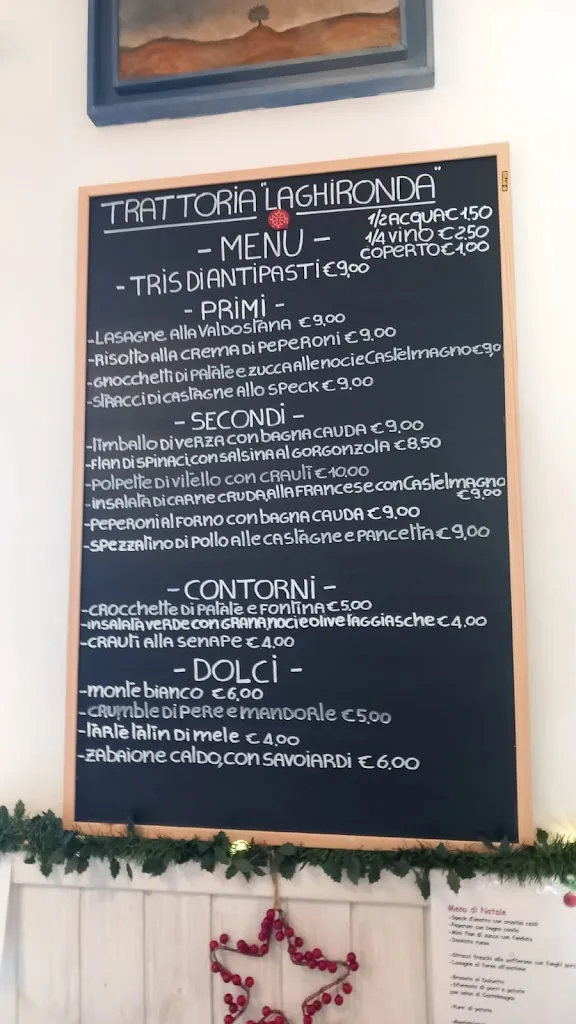 TRATTORIA "LAGHIRONDA"
1/2 ACQUA € 1.50
1/4 VINO € 2,50
COPERTO € 1,00
- MENU -
- TRIS DI ANTIPASTI € 9,00
- PRIMI -
-LASAGNE ALLA VALDOSTANA € 9,00
-RISOTTO ALLA CREMA DI PEPERONI € 9,00
-GNOCCHETTI DI PATATE E ZUCCA ALLE NOCI E CASTELMAGNO € 9,0
-STRACCI DI CASTAGNE ALLO SPECK € 9,00
- SECONDI -
-TIMBALLO DI VERZA CON BAGNA CAUDA € 9,00
-FLAN DI SPINACI, CON SALSINA AL GORGONZOLA € 8,50
-POLPETTE DI VITELLO CON CRAUTI € 10,00
-INSALATA DI CARNE CRUDA, ALLA FRANCESE CON CASTELMAGNO
€ 9,00
-PEPERONI AL FORNO CON BAGNA CAUDA € 9,00
-SPEZZATINO DI POLLO ALLE CASTAGNE E PANCETTA € 9,00
- CONTORNI -
-CROCCHETTE DI PATATE E FONTINA € 5,00
-INSALATA VERDE CON GRANA, NOCI E OLIVE TAGGIASCHE € 4,00
-CRAUTI ALLA SENAPE € 4,00
- DOLCI -
-MONTE BIANCO € 6,00
-CRUMBLE DI PERE E MANDORLE € 5,00
-TARTE TATIN DI MELE € 4,00
-ZABAIONE CALDO, CON SAVOIARDI € 6,00
Menu di Natale
-Speck d'anatra con crostini caldi
-Peperoni con bagna cauda
-Mini flan di zucca con fonduta
-Insalata russa
-Stracci freschi allo zafferano con funghi
-Lasagne al forno all'
-Brasato al
-Sformato di porri e patate
con salsa al Castelmagno